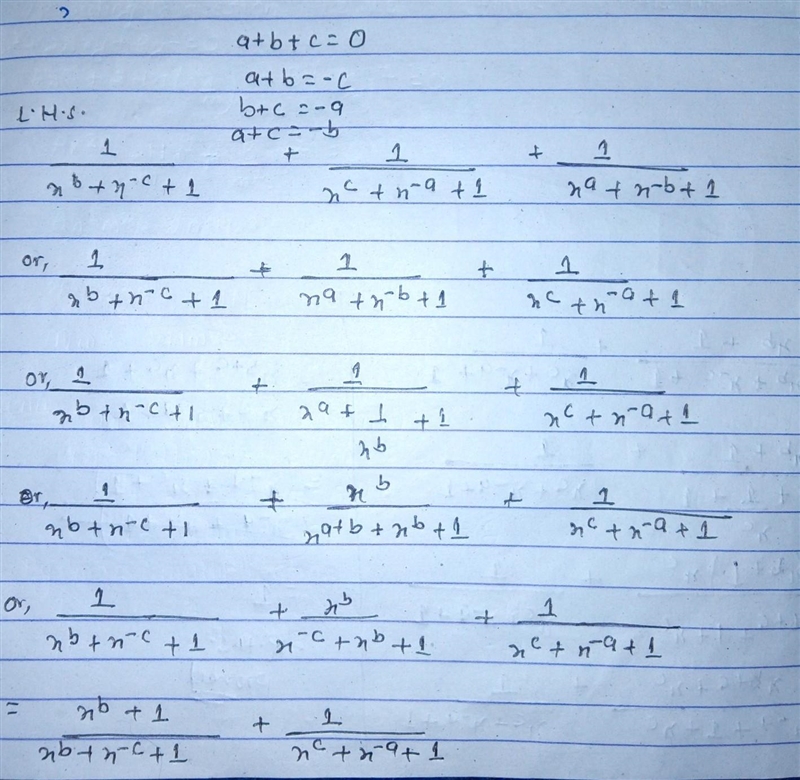 ?
a+b+c=0
a+b=-c
L.H.S.
b+c=-a
a+c=-b
1/(x^b + x^-c + 1) + 1/(x^c + x^-a + 1) + 1/(x^a + x^-b + 1)
or, 1/(x^b + x^-c + 1) + 1/(x^a + x^-b + 1) + 1/(x^c + x^-a + 1)
or, 1/(x^b + x^-c + 1) + 1/(x^a + 1/x^b + 1) + 1/(x^c + x^-a + 1)
or, 1/(x^b + x^-c + 1) + x^b/(x^a+b + x^b + 1) + 1/(x^c + x^-a + 1)
or, 1/(x^b + x^-c + 1) + x^b/(x^-c + x^b + 1) + 1/(x^c + x^-a + 1)
= (x^b + 1)/(x^b + x^-c + 1) + 1/(x^c + x^-a + 1)